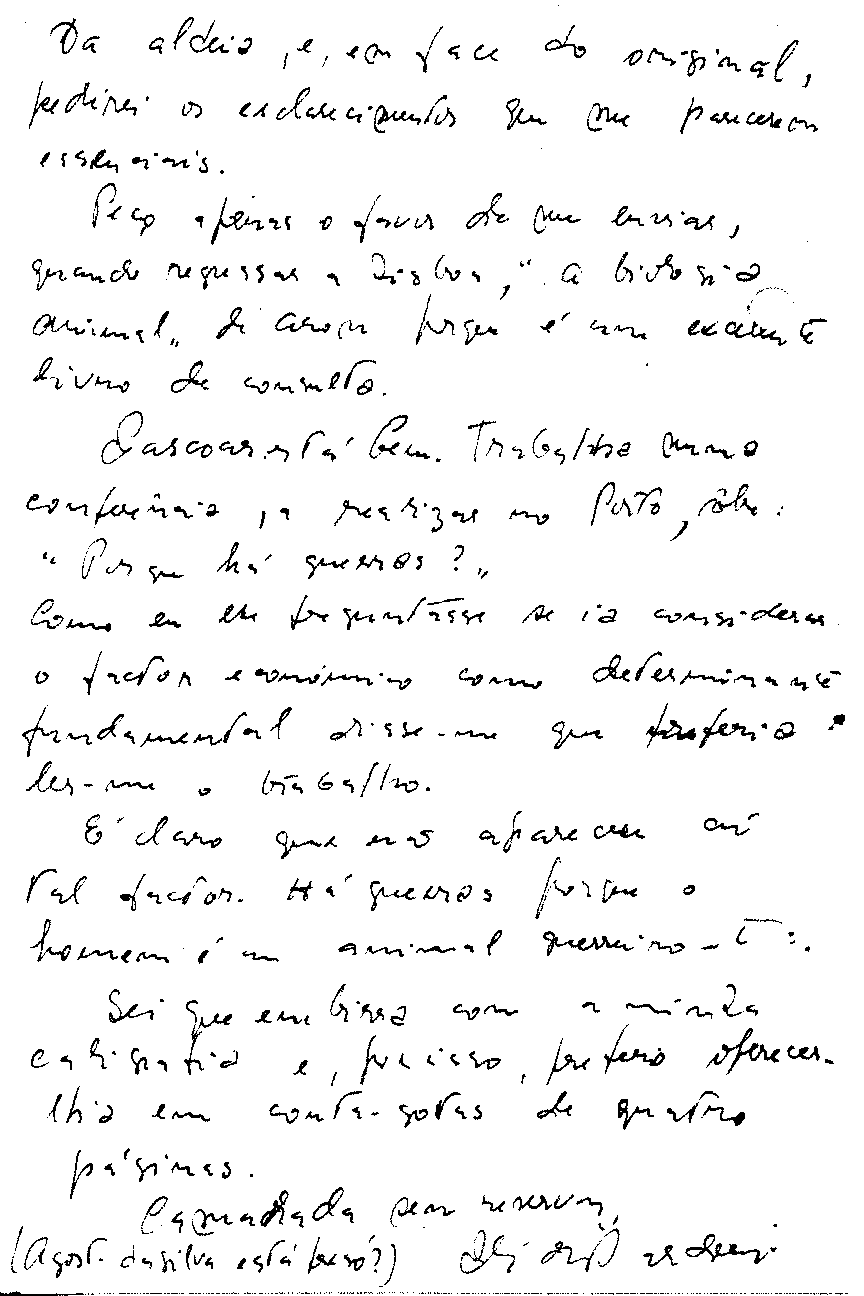 Da aldeia, e, em face do original,
pedirei os esclarecimentos que me parecerem
essenciais.
Peço apenas o favor de me enviar,
quando regressar a Lisboa, "A biologia
animal" de Aron porque é um excelente
livro de consulta.
Pascoaes está bem. Trabalha numa
conferência, a realizar no Porto, sôbre:
"Porque há guerras?"
Como eu lhe preguntásse se ia considerar
o factor económico como determinante
fundamental disse-me que preferia
ler-me o trabalho.
É claro que não apareceu aí
tal factor. Há guerras porque o
homem é um animal guerreiro
Sei que embirra com a minha
caligrafia e, por isso, prefiro oferecer-
lha em conta-gotas de quatro
páginas.
Camarada sem reservas,
(Agost. da Silva está preso?)